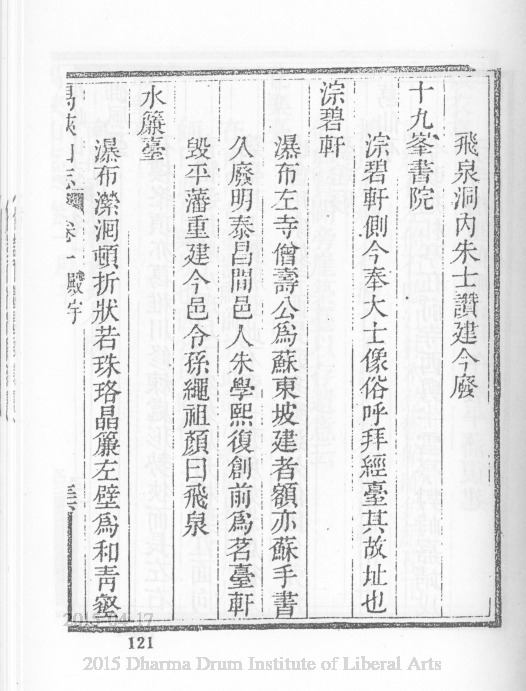 飛泉洞內朱士讚建今廢
十九峯書院
淙碧軒側今奉大士像俗呼拜經臺其故址也
淙碧軒
瀑布左寺僧壽公爲蘇東坡建者額亦蘇手書
久廢明泰昌間邑人朱學熙復創前爲茗臺軒
毀平藩重建今邑令孫繩祖顏曰飛泉
水簾臺
瀑布濚洄頓折狀若珠珞晶簾左壁爲和青壑
峽山志 卷一 殿宇
121
2015 Dharma Drum Institute of Liberal Arts